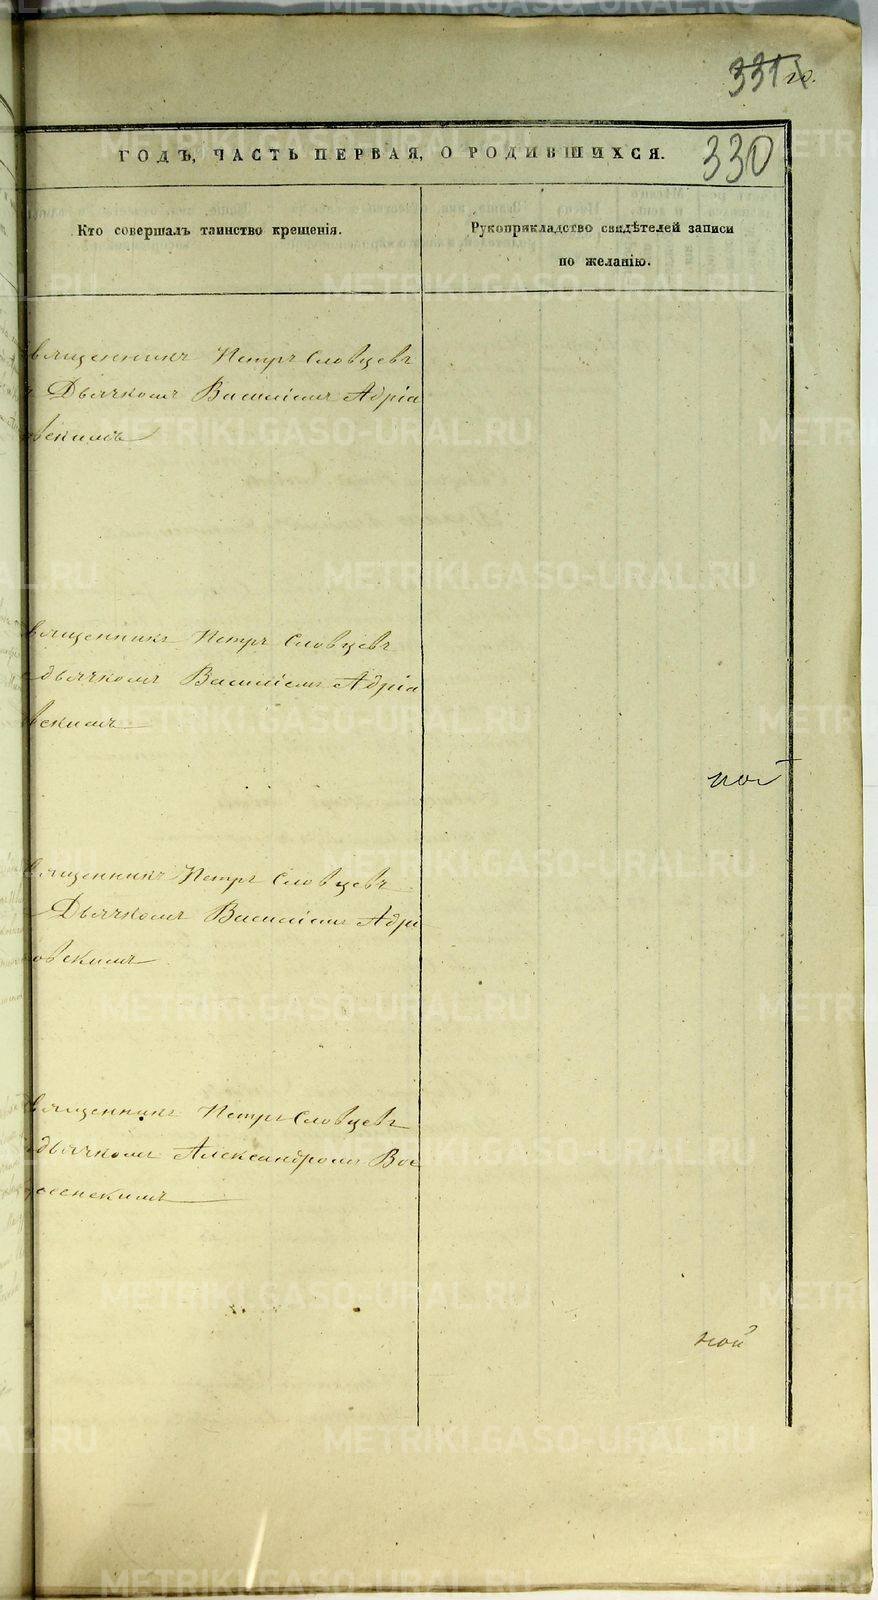 331 го.
ГОДЪ, ЧАСТЬ ПЕРВАЯ, О РОДИВШИХСЯ.
330
Кто совершалъ таинство крещенія.
Рукоприкладство свидѣтелей записи
по желанію.
вященникъ Петръ Словцевъ
Дьячкомъ Василіемъ Адріа
вскимъ
вященникъ Петръ Словцевъ
дьячкомъ Василіемъ Адріа
вскимъ
ной
вященникъ Петръ Словцевъ
Дьячкомъ Василіемъ Адрі
овскимъ
вященникъ Петръ Словцевъ
дьячкомъ Александромъ Воз
несенскимъ
ной
METRIKI.GASO-URAL.RU